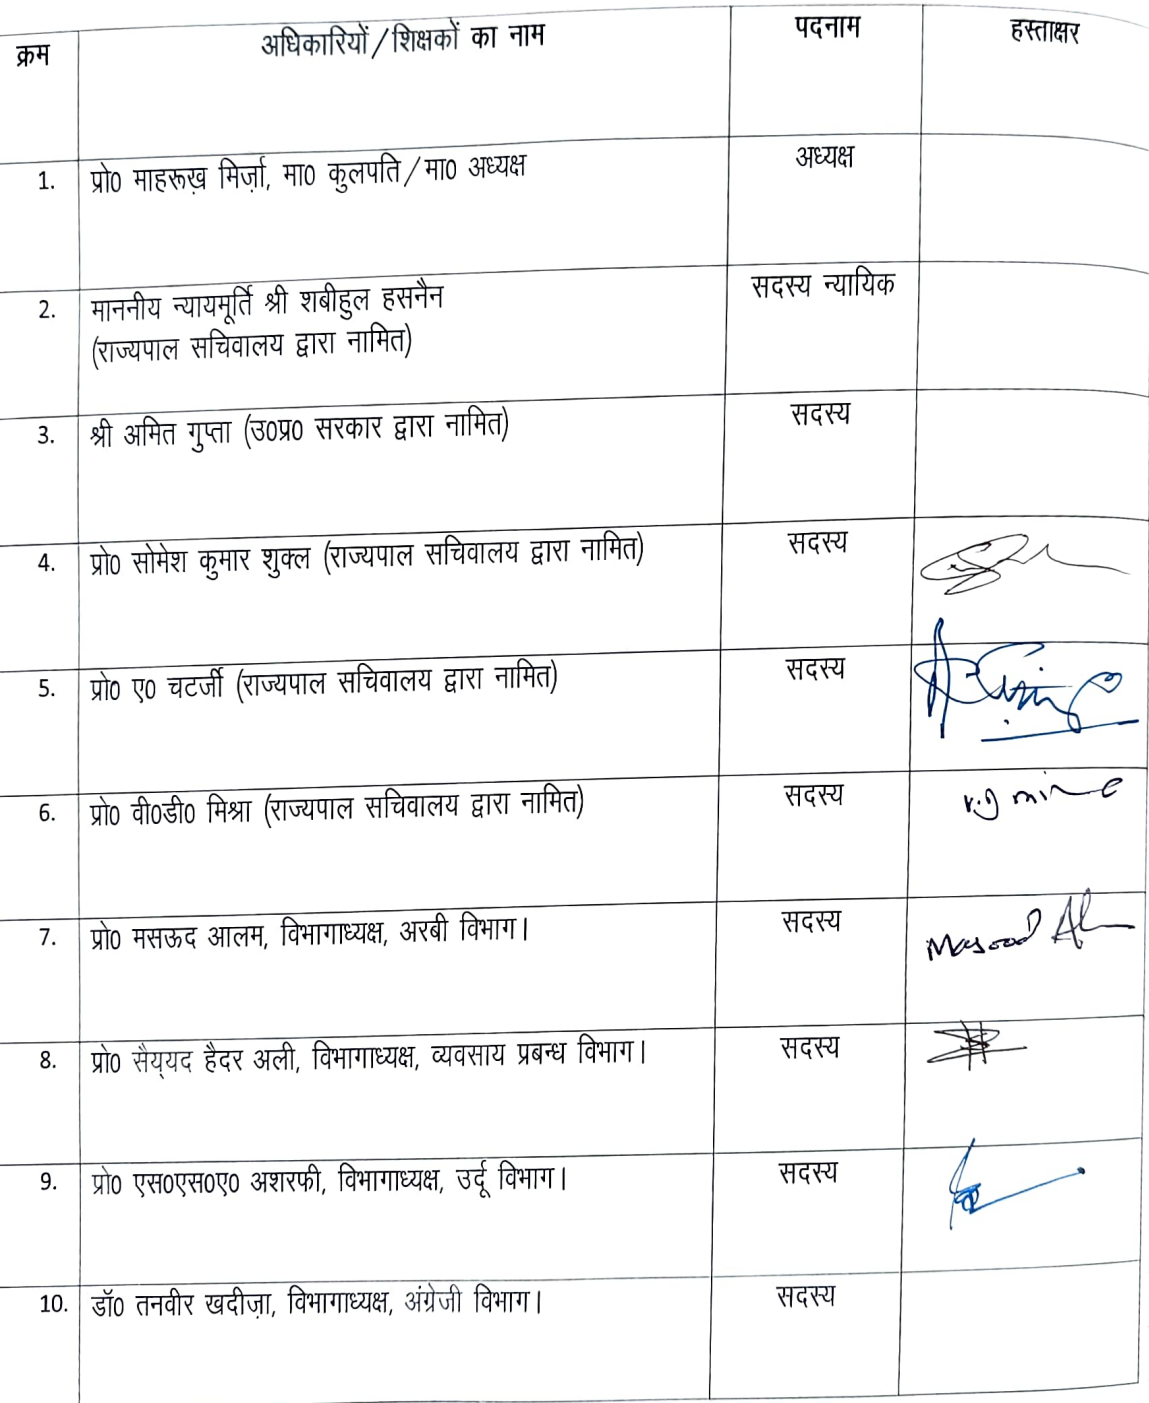 क्रम अधिकारियों/शिक्षकों का नाम पदनाम हस्ताक्षर
1. प्रो0 माहरूख़ मिर्ज़ा, मा0 कुलपति/मा0 अध्यक्ष अध्यक्ष
2. माननीय न्यायमूर्ति श्री शबीहुल हसनैन सदस्य न्यायिक
(राज्यपाल सचिवालय द्वारा नामित)
3. श्री अमित गुप्ता (उ0प्र0 सरकार द्वारा नामित) सदस्य
4. प्रो0 सोमेश कुमार शुक्ल (राज्यपाल सचिवालय द्वारा नामित) सदस्य
5. प्रो0 ए0 चटर्जी (राज्यपाल सचिवालय द्वारा नामित) सदस्य
6. प्रो0 वी0डी0 मिश्रा (राज्यपाल सचिवालय द्वारा नामित) सदस्य
7. प्रो0 मसऊद आलम, विभागाध्यक्ष, अरबी विभाग। सदस्य Masood
8. प्रो0 सैय्यद हैदर अली, विभागाध्यक्ष, व्यवसाय प्रबन्ध विभाग। सदस्य
9. प्रो0 एस0एस0ए0 अशरफी, विभागाध्यक्ष, उर्दू विभाग। सदस्य
10. डॉ0 तनवीर खदीज़ा, विभागाध्यक्ष, अंग्रेजी विभाग। सदस्य